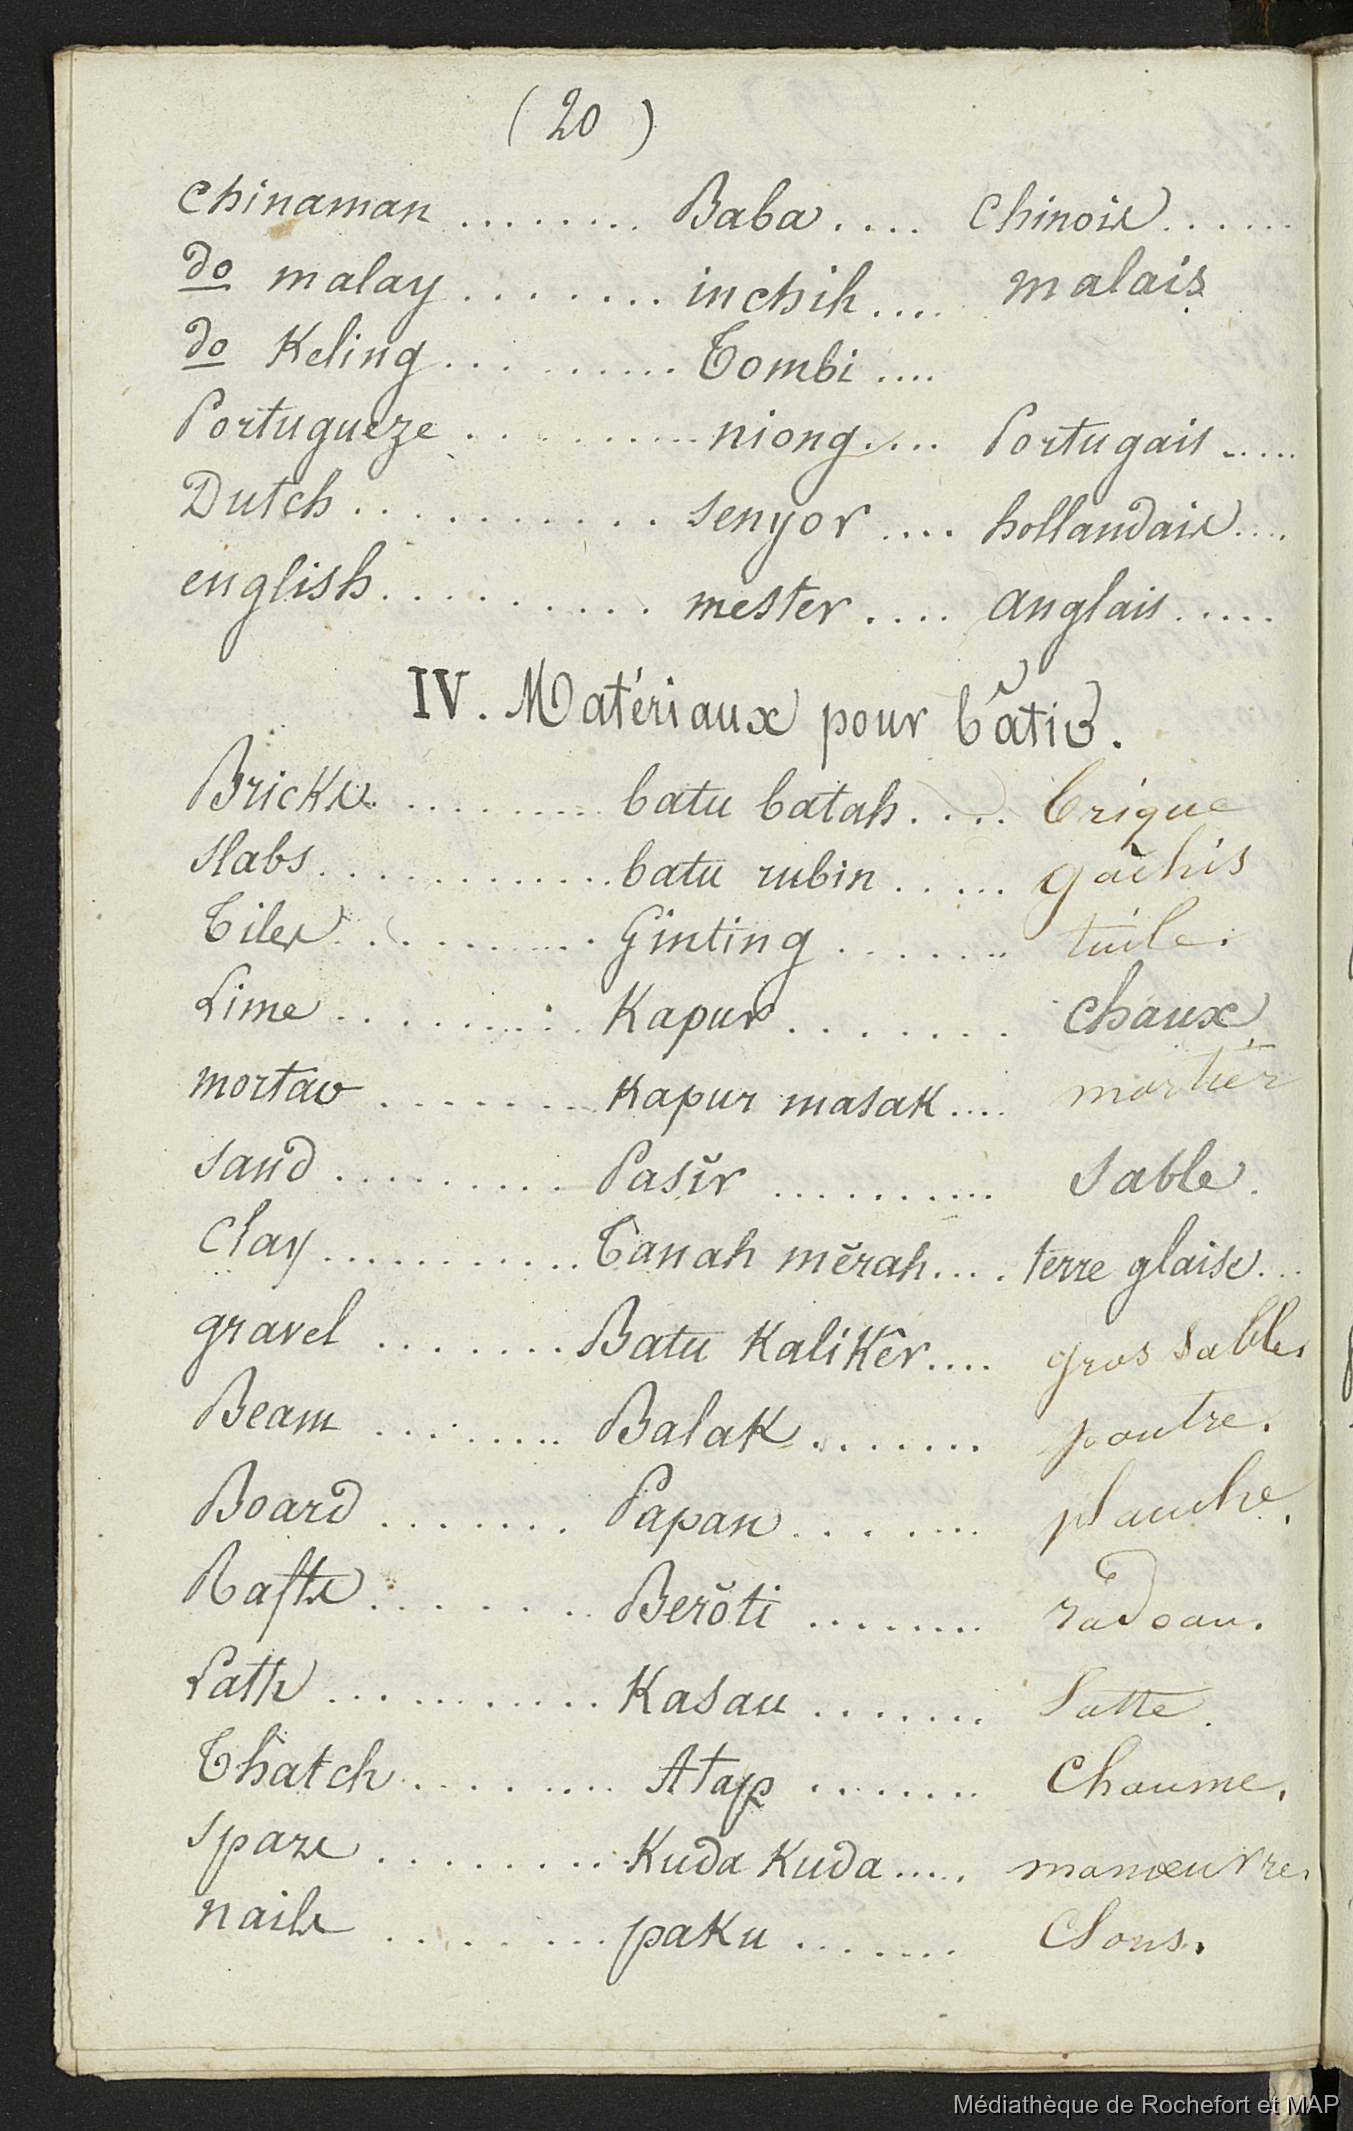 ( 20 )
Chinaman ........ Baba .... Chinois ......
do malay ........ inchih .... malais
do Keling .......... Tombi ....
Portugueze .......... niong .... Portugais .....
Dutch .......... senyor .... hollandais ....
english .......... mester .... anglais .....
IV. Matériaux pour bâtir.
Bricks .......... batu batah .... brique
slabs ............ batu rubin ..... gâchis
Tiles .......... Ginting ....... tuile.
Lime .......... Kapur ....... chaux
mortar ........ Kapur masak .... mortier
sand ......... Pasĭr .......... sable.
Clay ........... Tanah mĕrah .... terre glaise ...
gravel ........ Batu Kalikêr .... gros sable.
Beam ......... Balak ....... poutre.
Board ....... Papan ....... planche.
Rafts ....... Berŏti ........ radeau.
Lath .......... Kasau ....... latte.
Thatch ......... Atap ....... Chaume.
spars ......... Kuda Kuda ..... manœuvre.
nails ........ paku ....... Clous.
Médiathèque de Rochefort et MAP